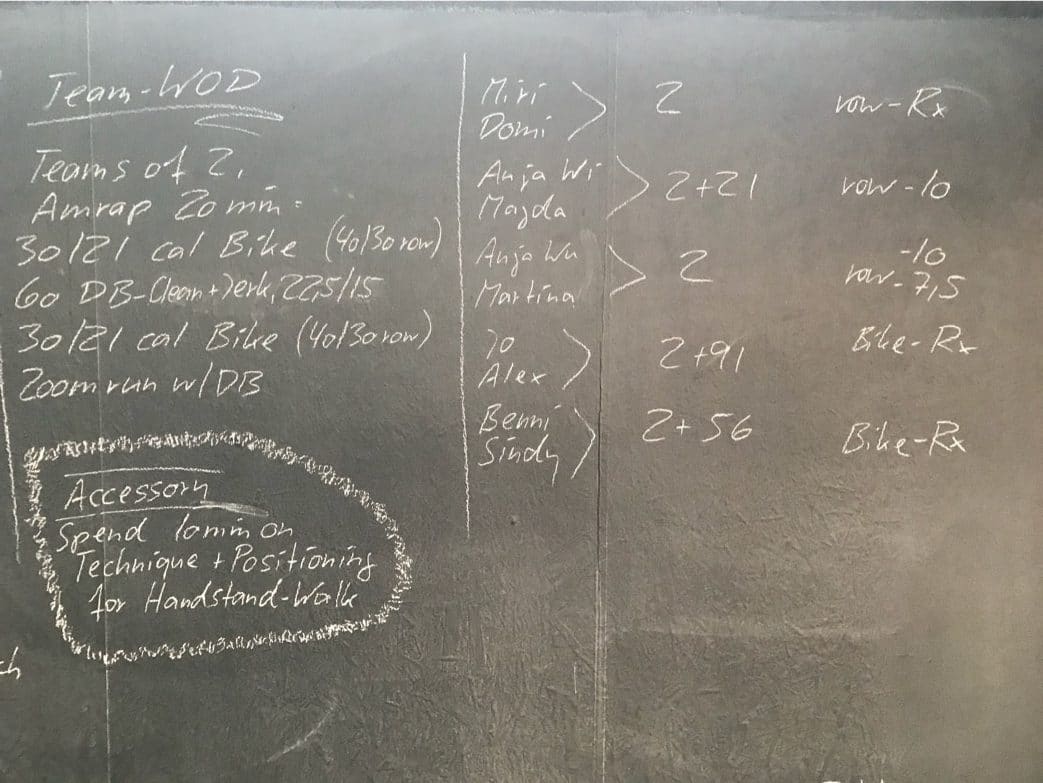 Team-WOD
Teams of 2.
Amrap 20 min.
30/21 cal Bike (40/30 row)
60 DB-Clean+Jerk, 22,5/15
30/21 cal Bike (40/30 row)
200m run w/DB
Accessory
Spend 10min on
Technique + Positioning
for Handstand-Walk
Miri
Domi
2 row-Rx
Anja Wi
Magda
2+21 row-10
Anja Wu
Martina
2 -10
row-7,5
Jo
Alex
2+91 Bike-Rx
Benni
Sindy
2+56 Bike-Rx
ch